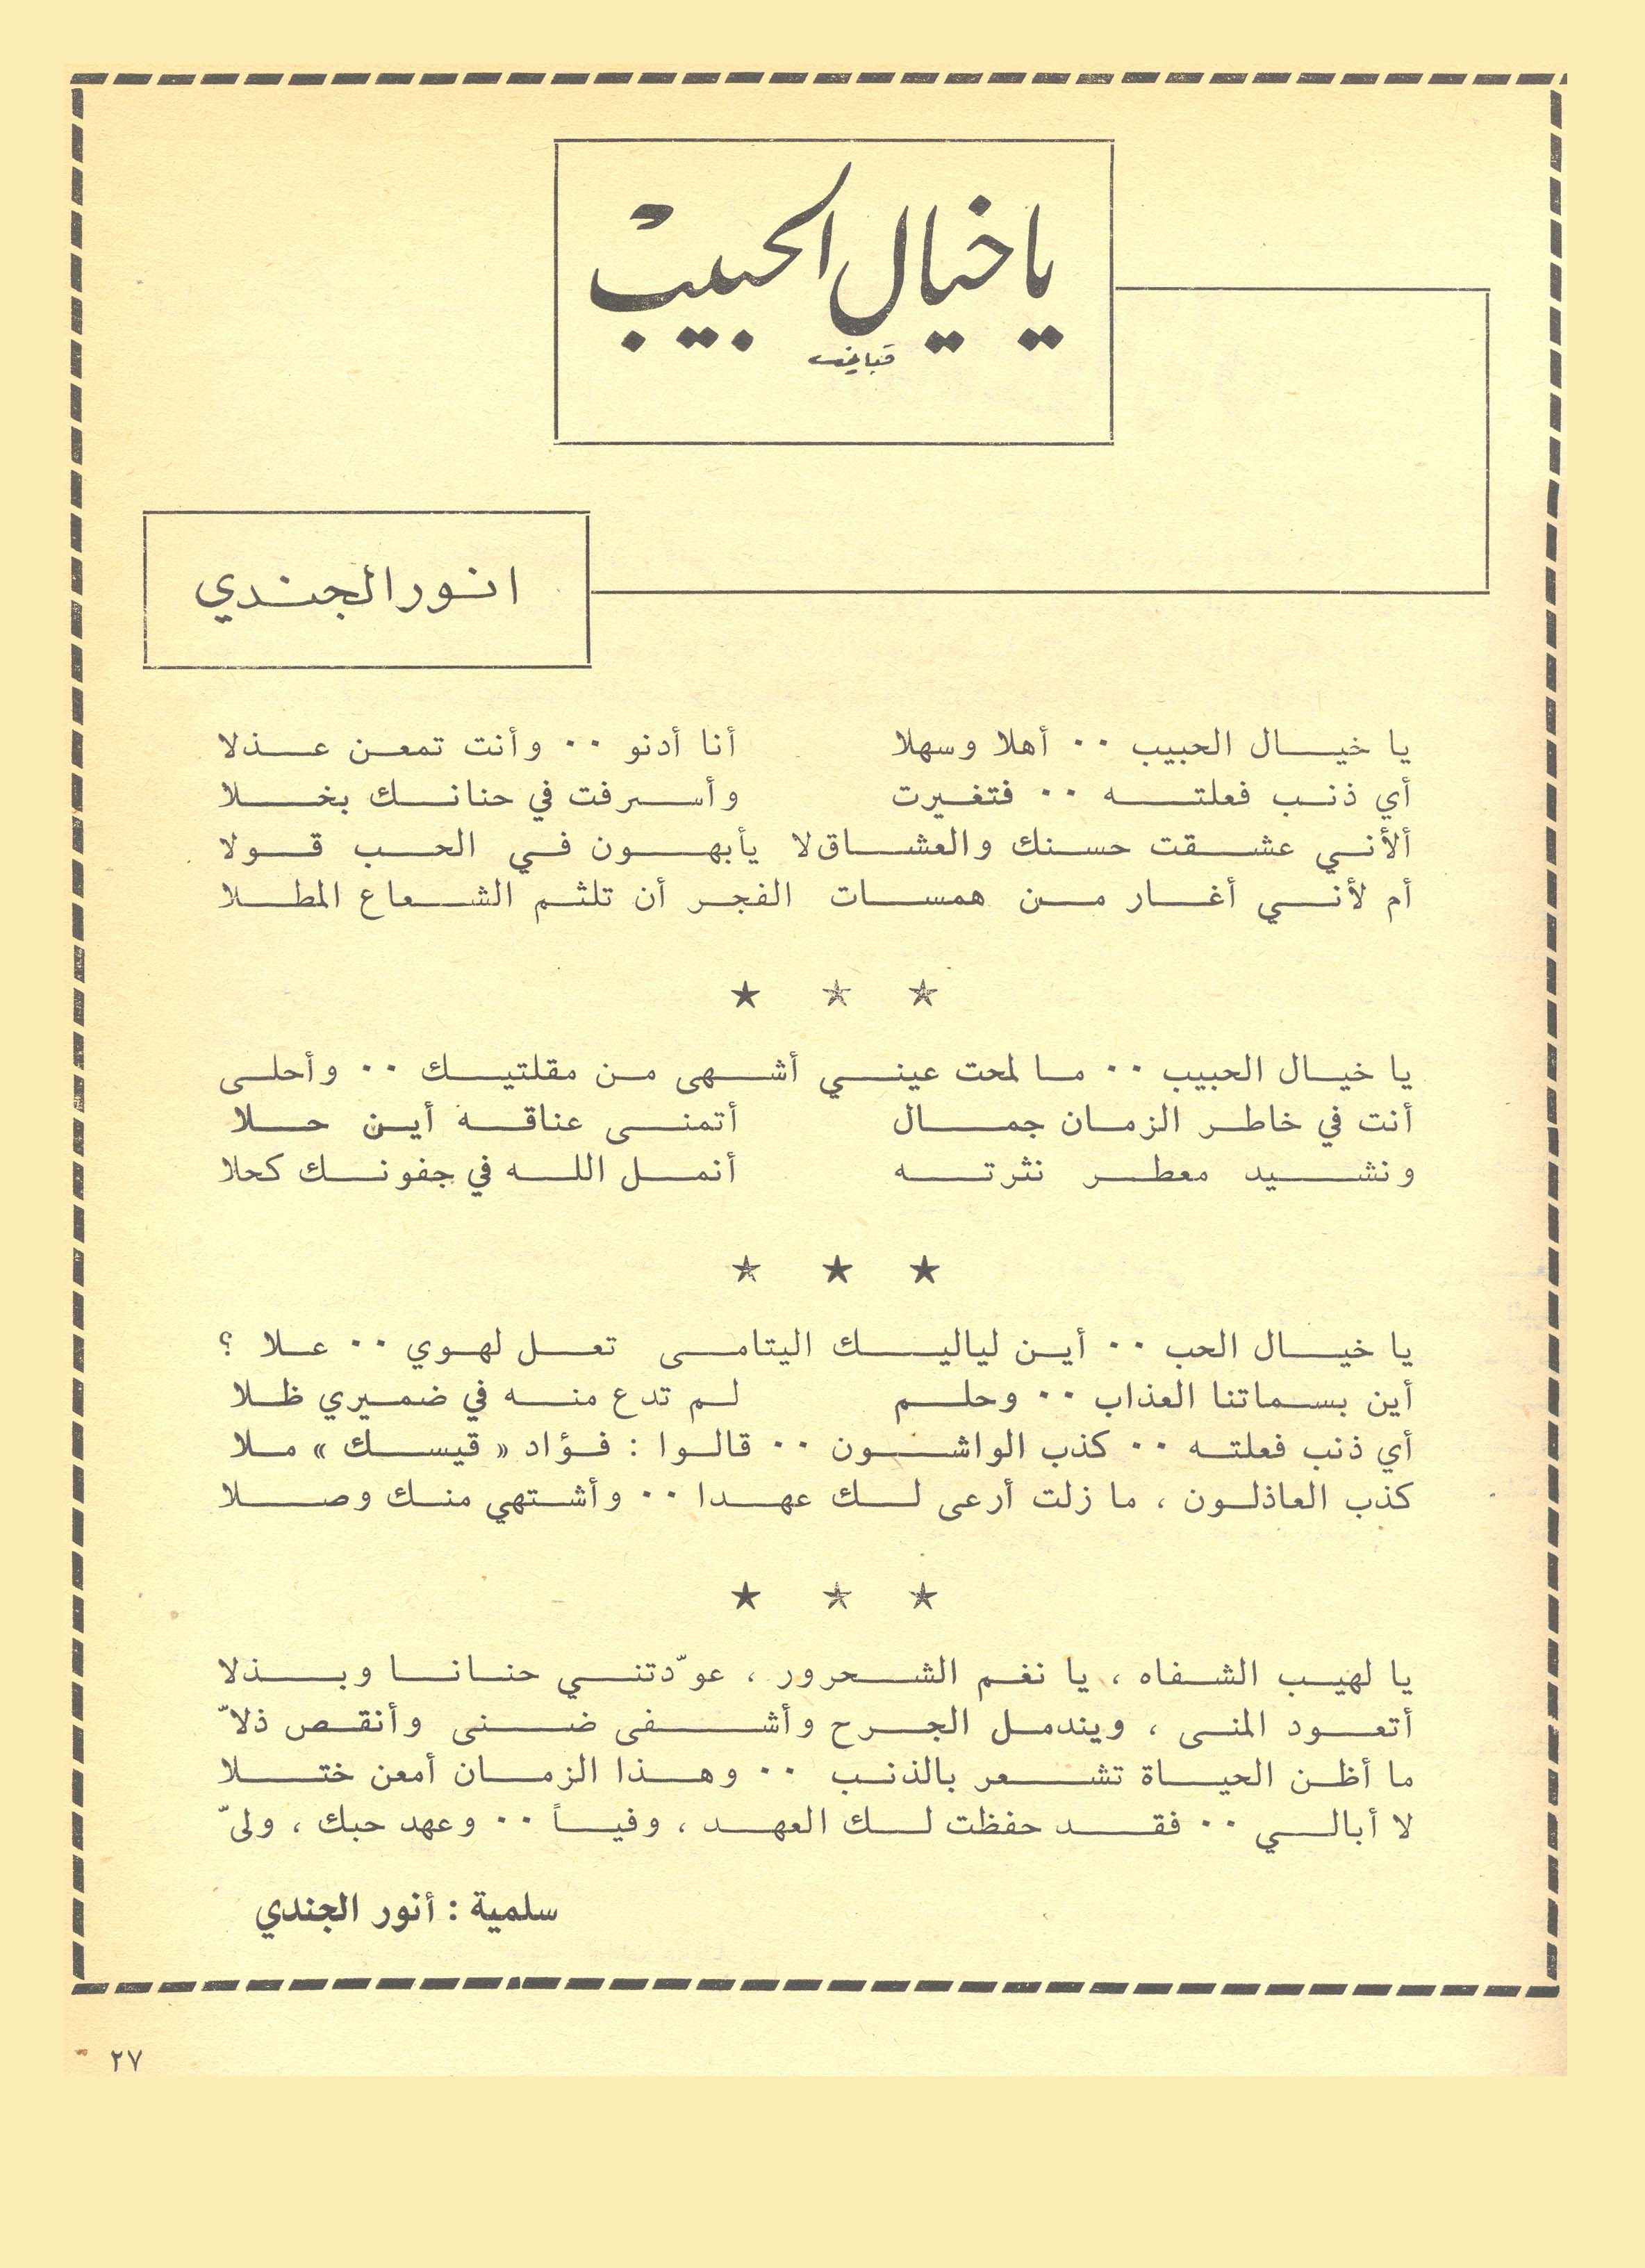 يا خيال الحبيب
قباني
انور الجندي
يا خيال الحبيب ·· أهلا وسهلا أنا أدنو ·· وأنت تمعن عذلا
أي ذنب فعلته ·· فتغيرت وأسرفت في حنانك بخلا
ألأني عشقت حسنك والعشاق لا يأبهون في الحب قولا
أم لأني أغار من همسات الفجر أن تلثم الشعاع المطلا
★ ★ ★
يا خيال الحبيب ·· ما لمحت عيني أشهى من مقلتيك ·· وأحلى
أنت في خاطر الزمان جمال أتمنى عناقه أين حلا
ونشيد معطر نثرته أنمل الله في جفونك كحلا
★ ★ ★
يا خيال الحب ·· أين لياليك اليتامى تعل لهوي ·· علا ؟
أين بسماتنا العذاب ·· وحلم لم تدع منه في ضميري ظلا
أي ذنب فعلته ·· كذب الواشون ·· قالوا : فؤاد « قيسك » ملا
كذب العاذلون ، ما زلت أرعى لك عهدا ·· وأشتهي منك وصلا
★ ★ ★
يا لهيب الشفاه ، يا نغم الشحرور ، عوّدتني حنانا وبذلا
أتعود المنى ، ويندمل الجرح وأشفى ضنى وأنقص ذلاّ
ما أظن الحياة تشعر بالذنب ·· وهذا الزمان أمعن ختلا
لا أبالي ·· فقد حفظت لك العهد ، وفياً ·· وعهد حبك ، ولىّ
سلمية : أنور الجندي
٢٧